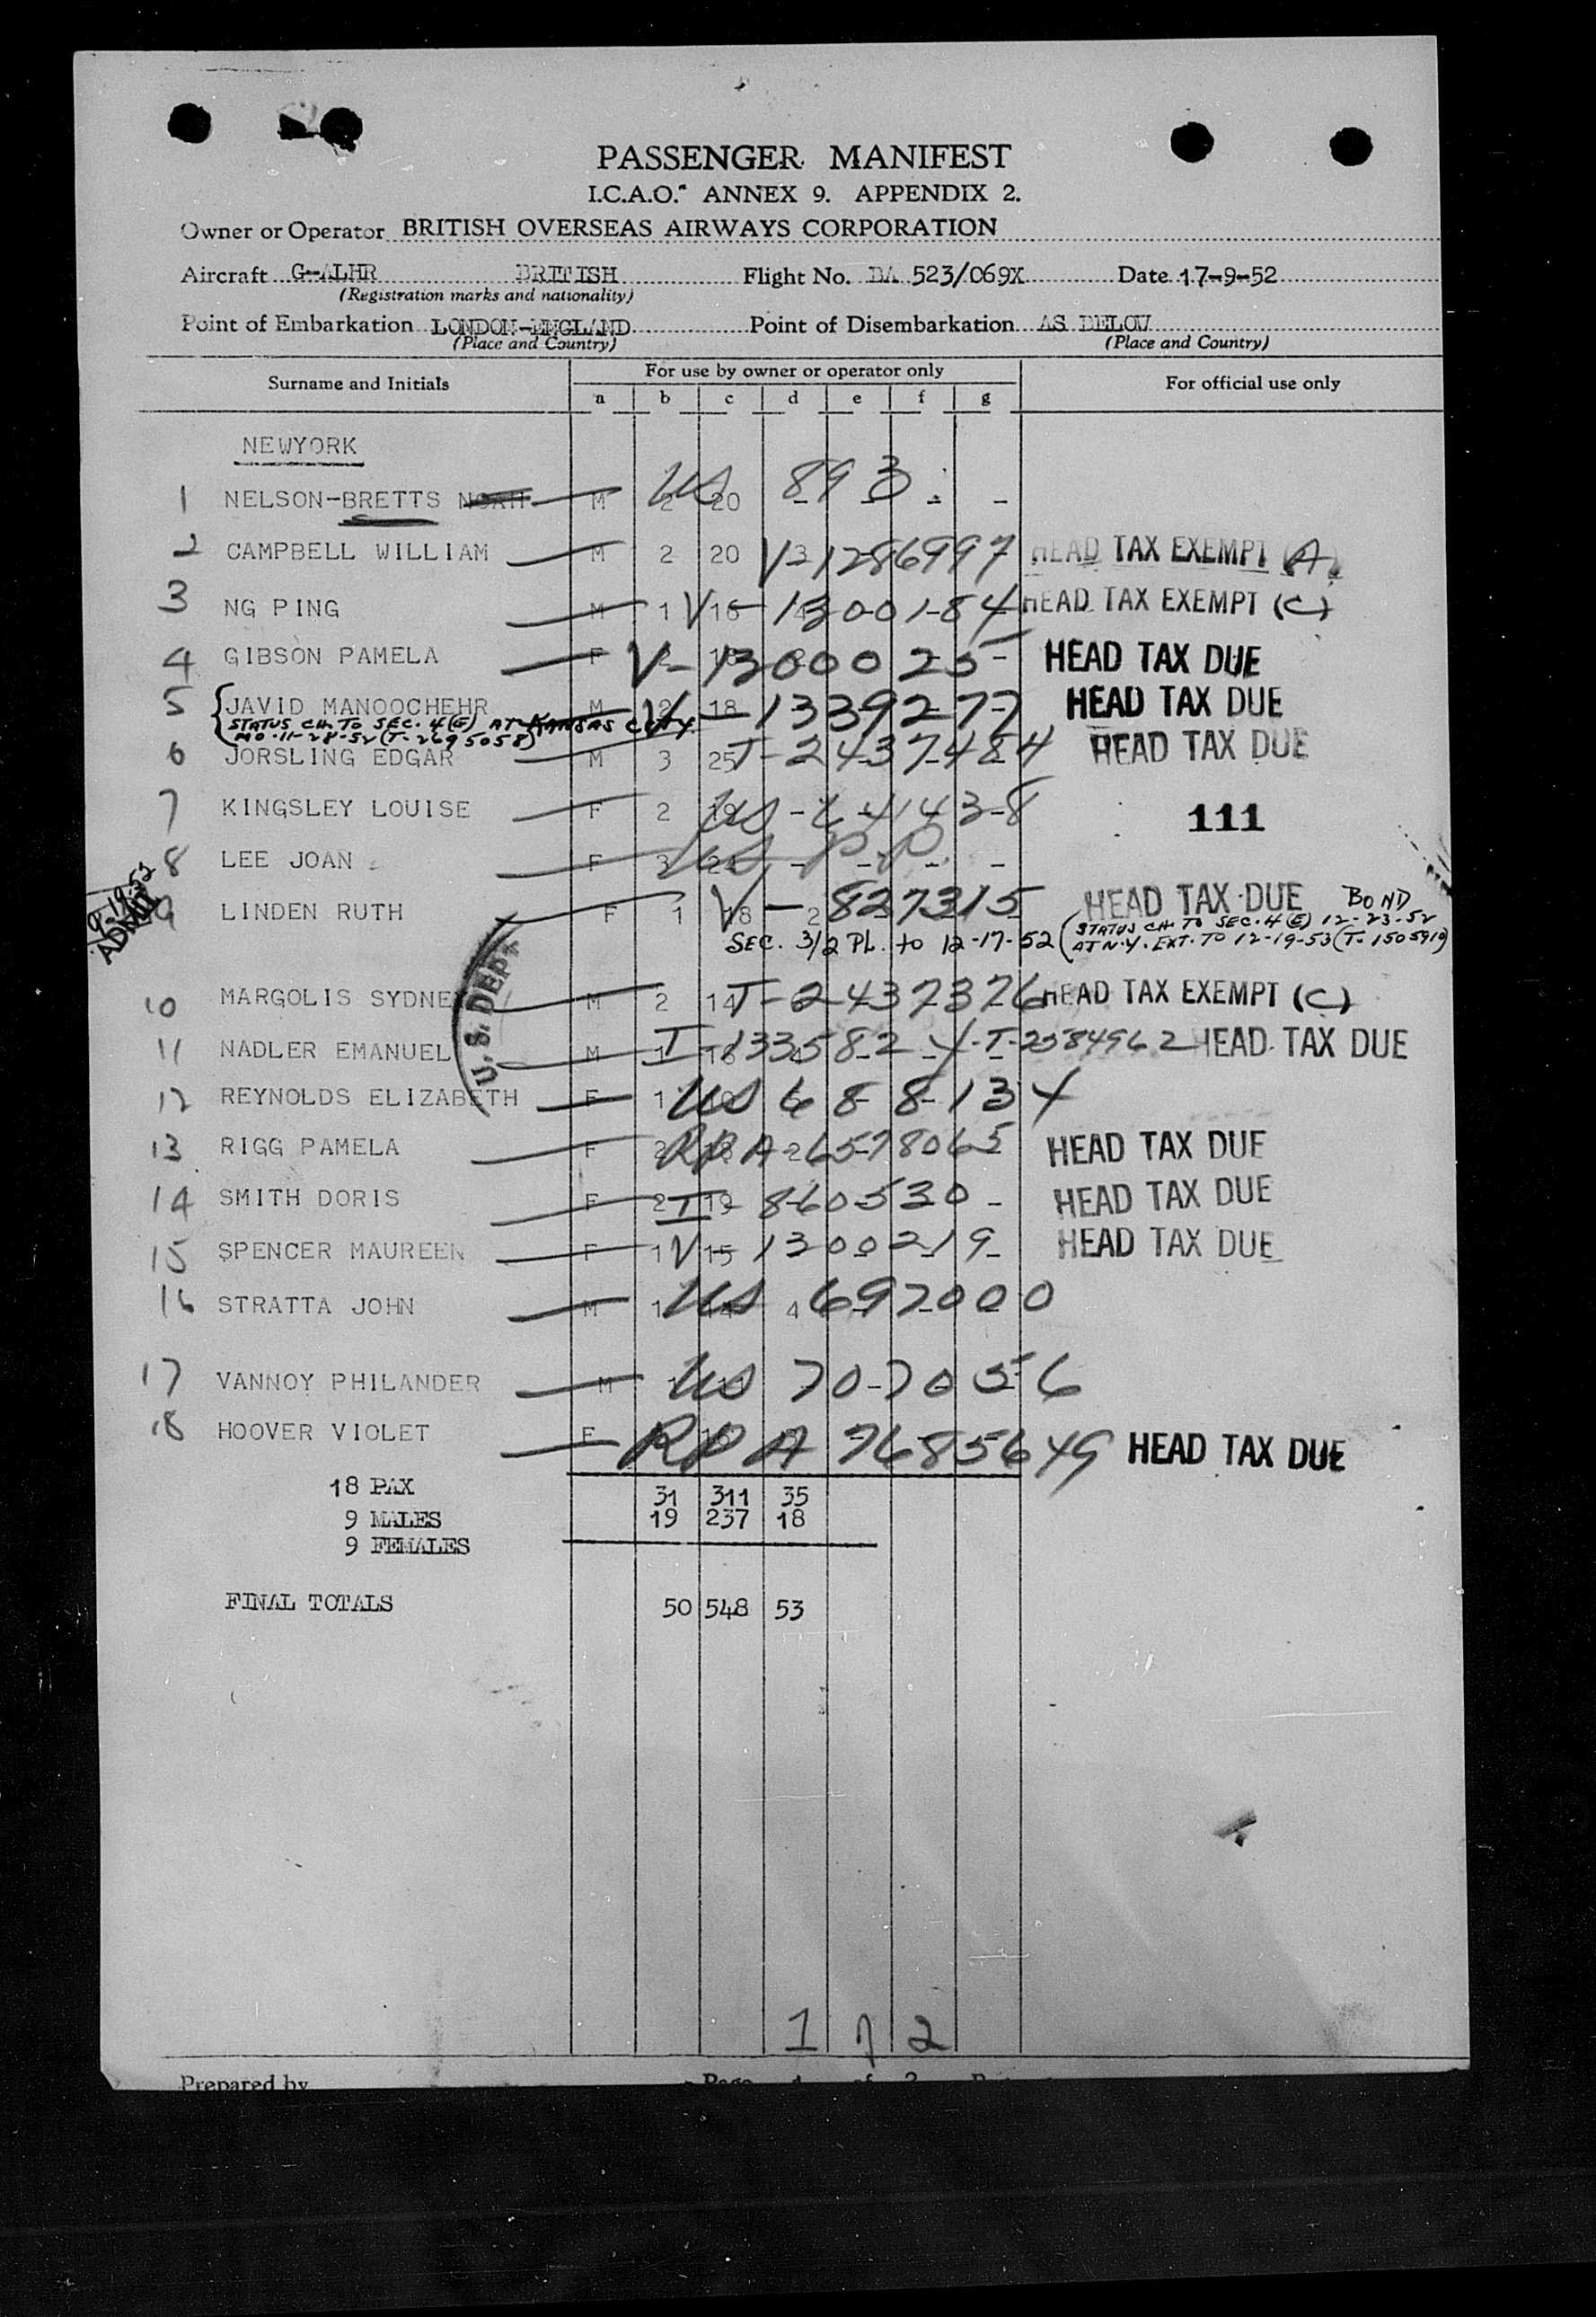 PASSENGER MANIFEST
I.C.A.O. ANNEX 9. APPENDIX 2.
Owner or Operator BRITISH OVERSEAS AIRWAYS CORPORATION
Aircraft G-ALHR BRITISH Flight No. BA 523/069X Date 17-9-52
(Registration marks and nationality)
Point of Embarkation LONDON-ENGLAND Point of Disembarkation AS BELOW
(Place and Country) (Place and Country)
Surname and Initials For use by owner or operator only For official use only
a b c d e f g
NEWYORK
1 NELSON-BRETTS NOAH M 2 20 - - - - US 893
2 CAMPBELL WILLIAM M 2 20 3 V-1286997 HEAD TAX EXEMPT (A)
3 NG PING M 1 16 4 V-1300184 HEAD TAX EXEMPT (C)
4 GIBSON PAMELA F V-1300025 HEAD TAX DUE
5 JAVID MANOOCHEHR M 2 18 V-1339277 HEAD TAX DUE
STATUS CH. TO SEC. 4(E) AT KANSAS CITY
MO. 11-28-52 (T-2695058)
6 JORSLING EDGAR M 3 25 T-2437484 HEAD TAX DUE
7 KINGSLEY LOUISE F 2 19 US-241438
111
8 LEE JOAN F 3 US P.P.
9-19-52
ADMIT
9 LINDEN RUTH F 1 18 2 V-827315 HEAD TAX DUE BOND
SEC. 3/2 PL. to 12-17-52 (STATUS CH. TO SEC. 4(E) 12-23-52
AT N.Y. EXT. TO 12-19-53 (T-1505910)
U.S. DEPT
10 MARGOLIS SYDNEY M 2 14 T-2437376 HEAD TAX EXEMPT (C)
11 NADLER EMANUEL M 1 16 4 I-133582 T-2584962 HEAD TAX DUE
12 REYNOLDS ELIZABETH F 1 US 688134
13 RIGG PAMELA F 2 18 2 RP A-6578065 HEAD TAX DUE
14 SMITH DORIS F 2 19 I 860530 HEAD TAX DUE
15 SPENCER MAUREEN F 1 15 V-1300219 HEAD TAX DUE
16 STRATTA JOHN M 1 14 4 US 697000
17 VANNOY PHILANDER M US 707056
18 HOOVER VIOLET F RP A 7685649 HEAD TAX DUE
18 PAX 31 311 35
9 MALES 19 237 18
9 FEMALES
FINAL TOTALS 50 548 53
1 7 2
Prepared by Page 1 of 2